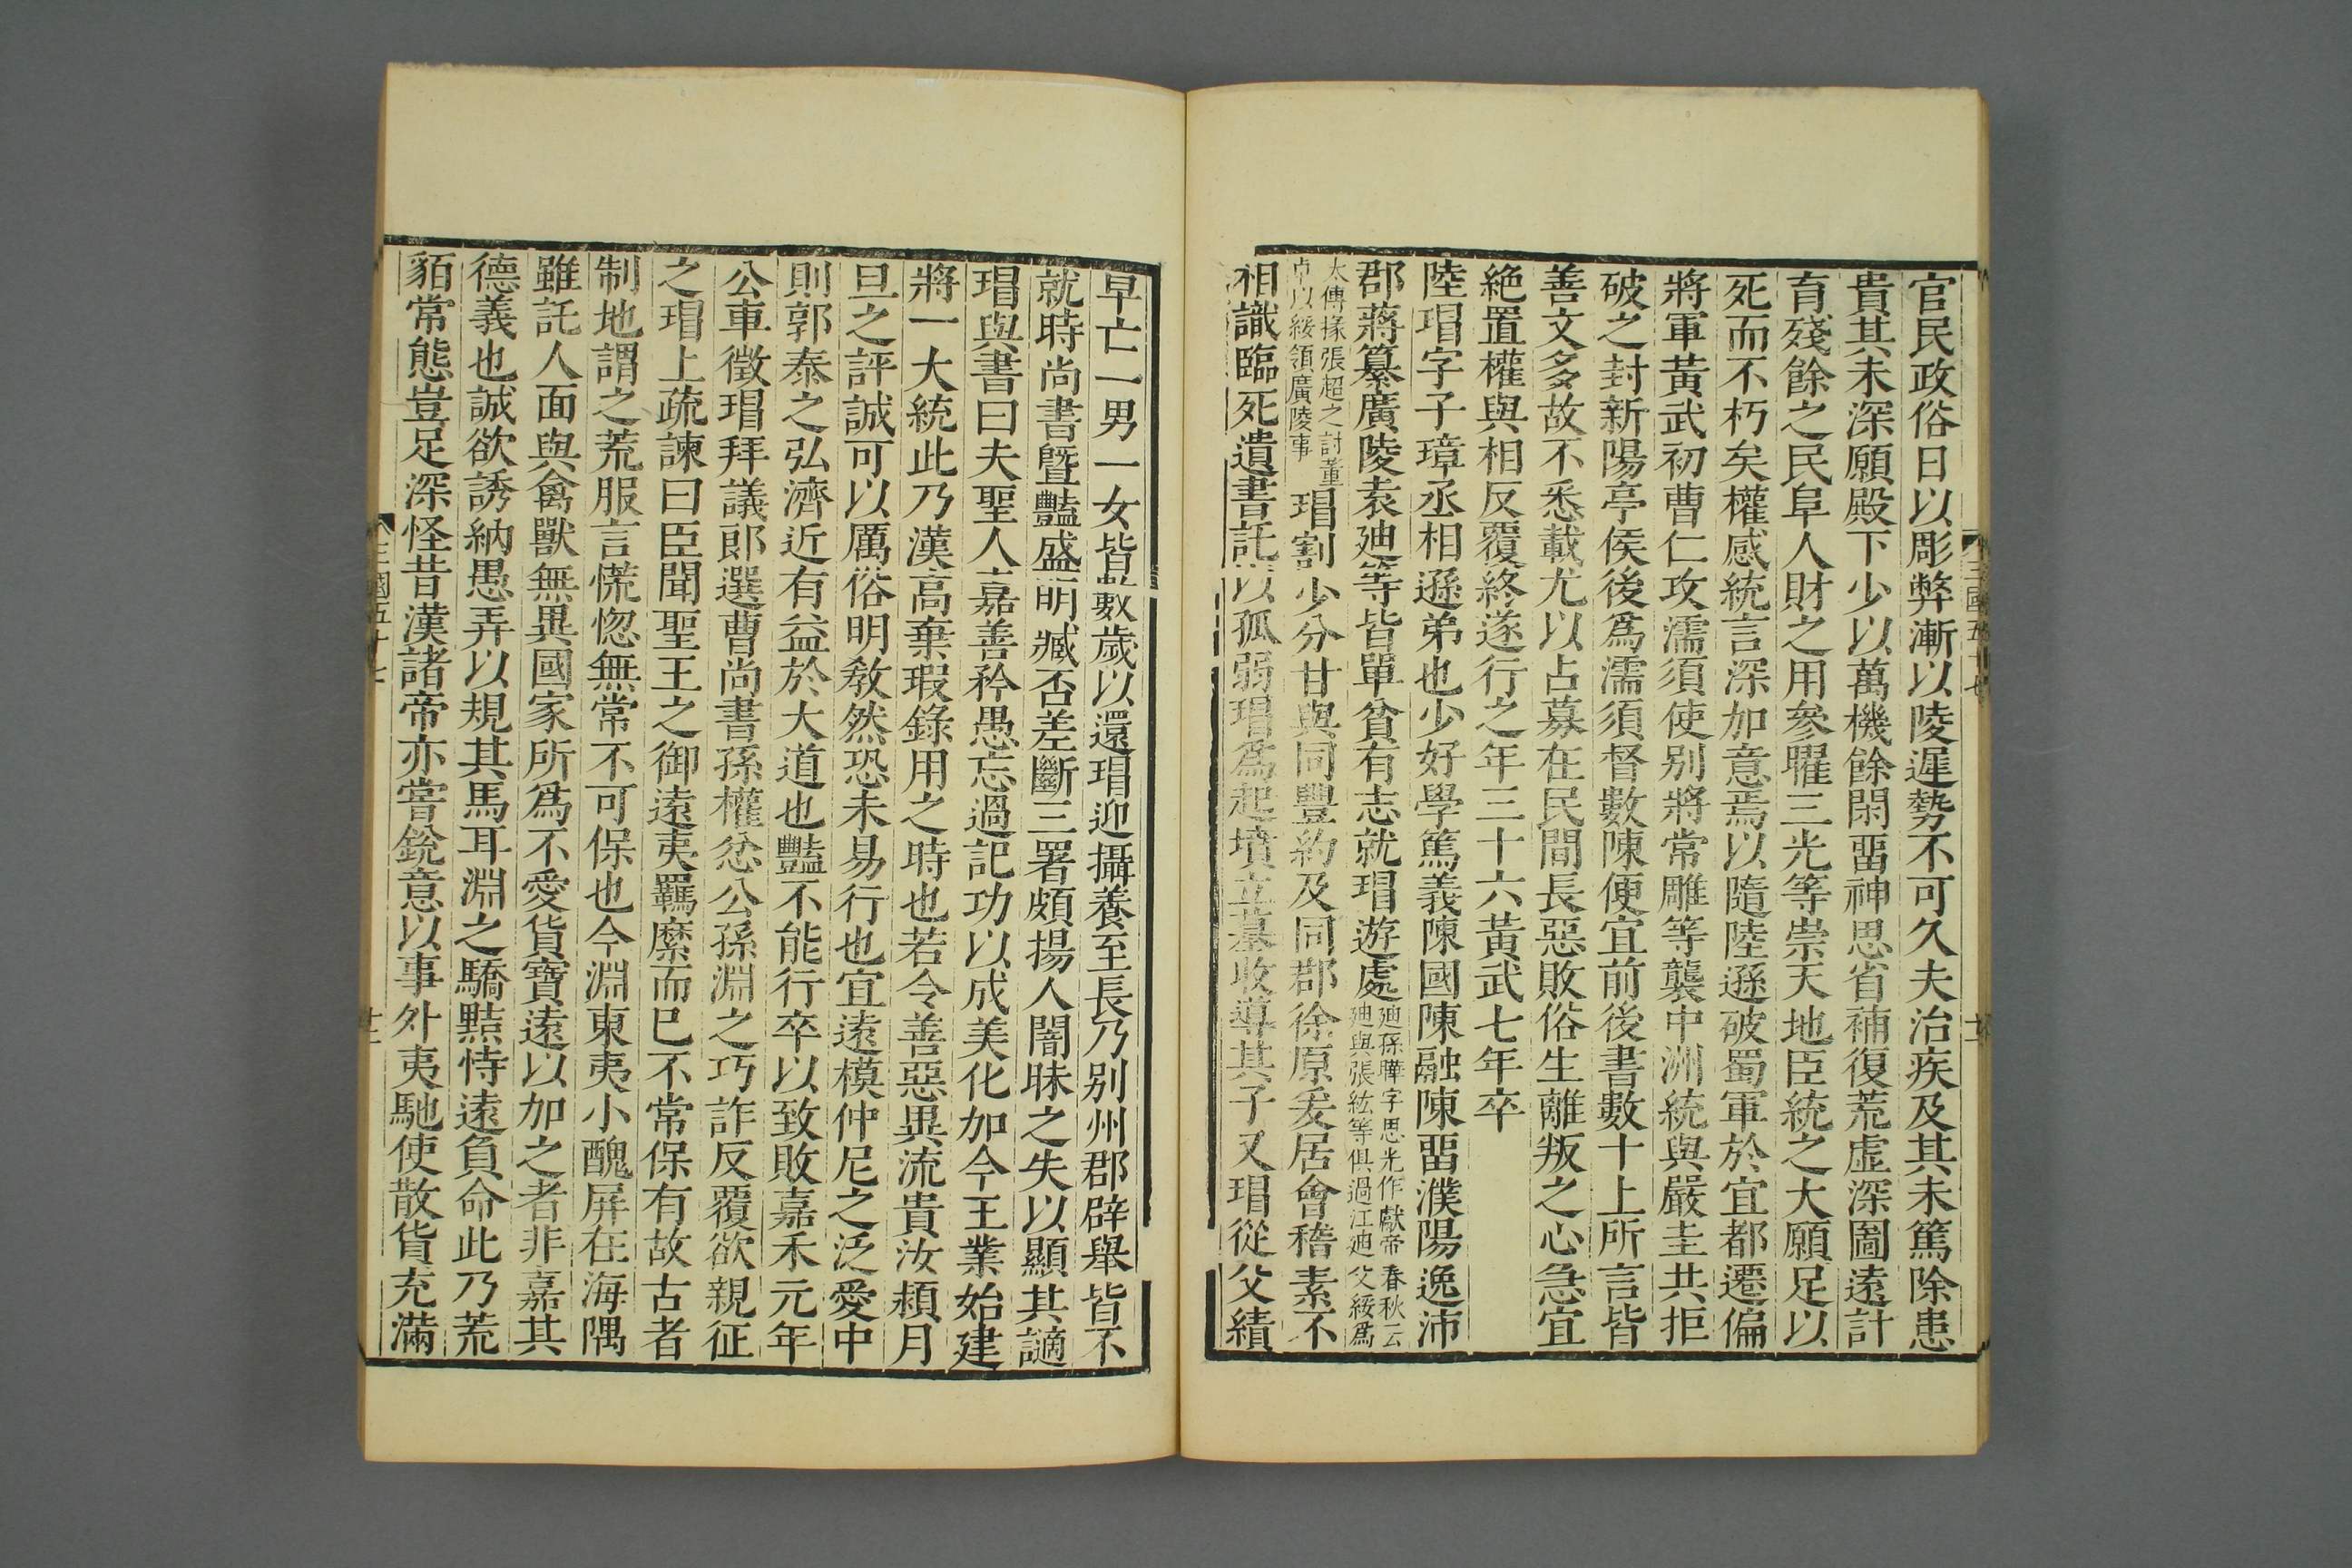 官民政俗日以彫弊漸以陵遲勢不可久夫治疾及其未篤除患
貴其未深願殿下少以萬機餘閑畱神思省補復荒虛深圖遠計
育殘餘之民阜人財之用參曜三光等崇天地臣統之大願足以
死而不朽矣權感統言深加意焉以隨陸遜破蜀軍於宜都遷偏
將軍黃武初曹仁攻濡須使别將常雕等襲中洲統與嚴圭共拒
破之封新陽亭侯後爲濡須督數陳便宜前後書數十上所言皆
善文多故不悉載尤以占募在民間長惡敗俗生離叛之心急宜
絶置權與相反覆終遂行之年三十六黃武七年卒
陸瑁字子璋丞相遜弟也少好學篤義陳國陳融陳畱濮陽逸沛
郡蔣纂廣陵袁迪等皆單貧有志就瑁遊處迪孫曄字思光作獻帝春秋云迪與張紘等俱過江迪父綏爲
太傅掾張超之討董卓以綏領廣陵事瑁割少分甘與同豐約及同郡徐原爰居會稽素不
相識臨死遺書託以孤弱瑁爲起墳立墓收導其子又瑁從父績
早亡一男一女皆數歲以還瑁迎攝養至長乃别州郡辟舉皆不
就時尚書曁豔盛明臧否差斷三署頗揚人闇昧之失以顯其讁
瑁與書曰夫聖人嘉善矜愚忘過記功以成美化加今王業始建
將一大統此乃漢高棄瑕錄用之時也若令善惡異流貴汝潁月
旦之評誠可以厲俗明敎然恐未易行也宜遠模仲尼之泛愛中
則郭泰之弘濟近有益於大道也豔不能行卒以致敗嘉禾元年
公車徵瑁拜議郎選曹尚書孫權忿公孫淵之巧詐反覆欲親征
之瑁上疏諫曰臣聞聖王之御遠夷羈縻而已不常保有故古者
制地謂之荒服言慌惚無常不可保也今淵東夷小醜屏在海隅
雖託人面與禽獸無異國家所爲不愛貨寶遠以加之者非嘉其
德義也誠欲誘納愚弄以規其馬耳淵之驕黠恃遠負命此乃荒
貊常態豈足深怪昔漢諸帝亦嘗銳意以事外夷馳使散貨充滿
三國五十七
十二